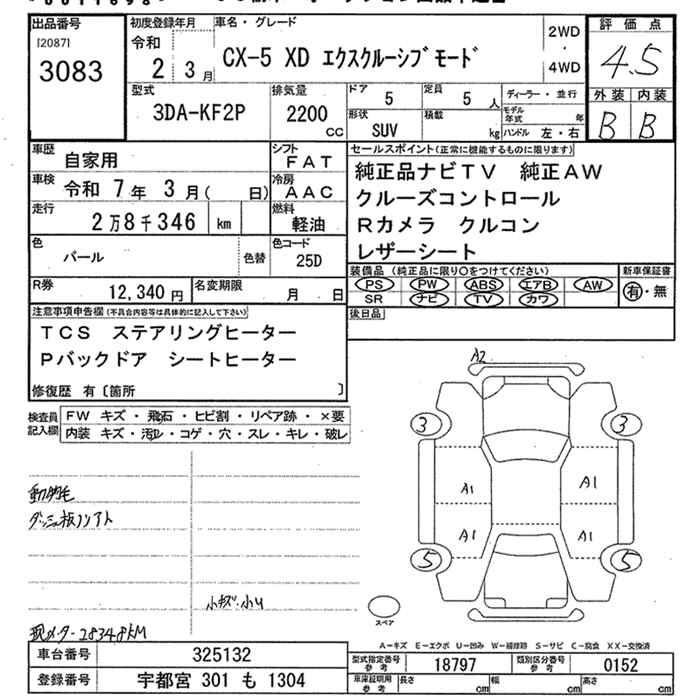 出品番号
[2087]
3083
初度登録年月
令和
2 3月
車名・グレード
CX-5 XD エクスクルーシブモード
2WD
・
4WD
評価点
4.5
外装 内装
B B
型式
3DA-KF2P
排気量
2200
CC
ドア
5
定員
5 人
形状
SUV
積載
kg
ディーラー・並行
モデル年式 年
ハンドル 左・右
車歴
自家用
シフト
FAT
車検
令和 7年 3月( 日)
冷房
AAC
走行
2万8千346 km
燃料
軽油
色
パール
色替
色コード
25D
R券
12,340円
名変期限
月 日
セールスポイント(正常に機能するものに限ります)
純正品ナビTV 純正AW
クルーズコントロール
Rカメラ クルコン
レザーシート
装備品 (純正品に限り○をつけてください)
PS PW ABS エアB AW
SR ナビ TV カワ
新車保証書
有・無
後日品
注意事項申告欄(不具合内容等は具体的に記入して下さい)
TCS ステアリングヒーター
Pバックドア シートヒーター
修復歴 有〔箇所 〕
検査員
記入欄
FW キズ・飛石・ヒビ割・リペア跡・×要
内装 キズ・汚れ・コゲ・穴・スレ・キレ・破レ
ダッシュ板ソノアト
小キズ・小U
現メーター28348KM
A2
3 3
A1 A1
A1 A1
5 5
スペア
A-キズ E-エクボ U-凹み W-補修跡 S-サビ C-腐食 XX-交換済
車台番号
325132
登録番号
宇都宮 301 も 1304
型式指定番号
参考
18797
類別区分番号
参考
0152
車庫証明用
参考
長さ cm
幅 cm
高さ cm